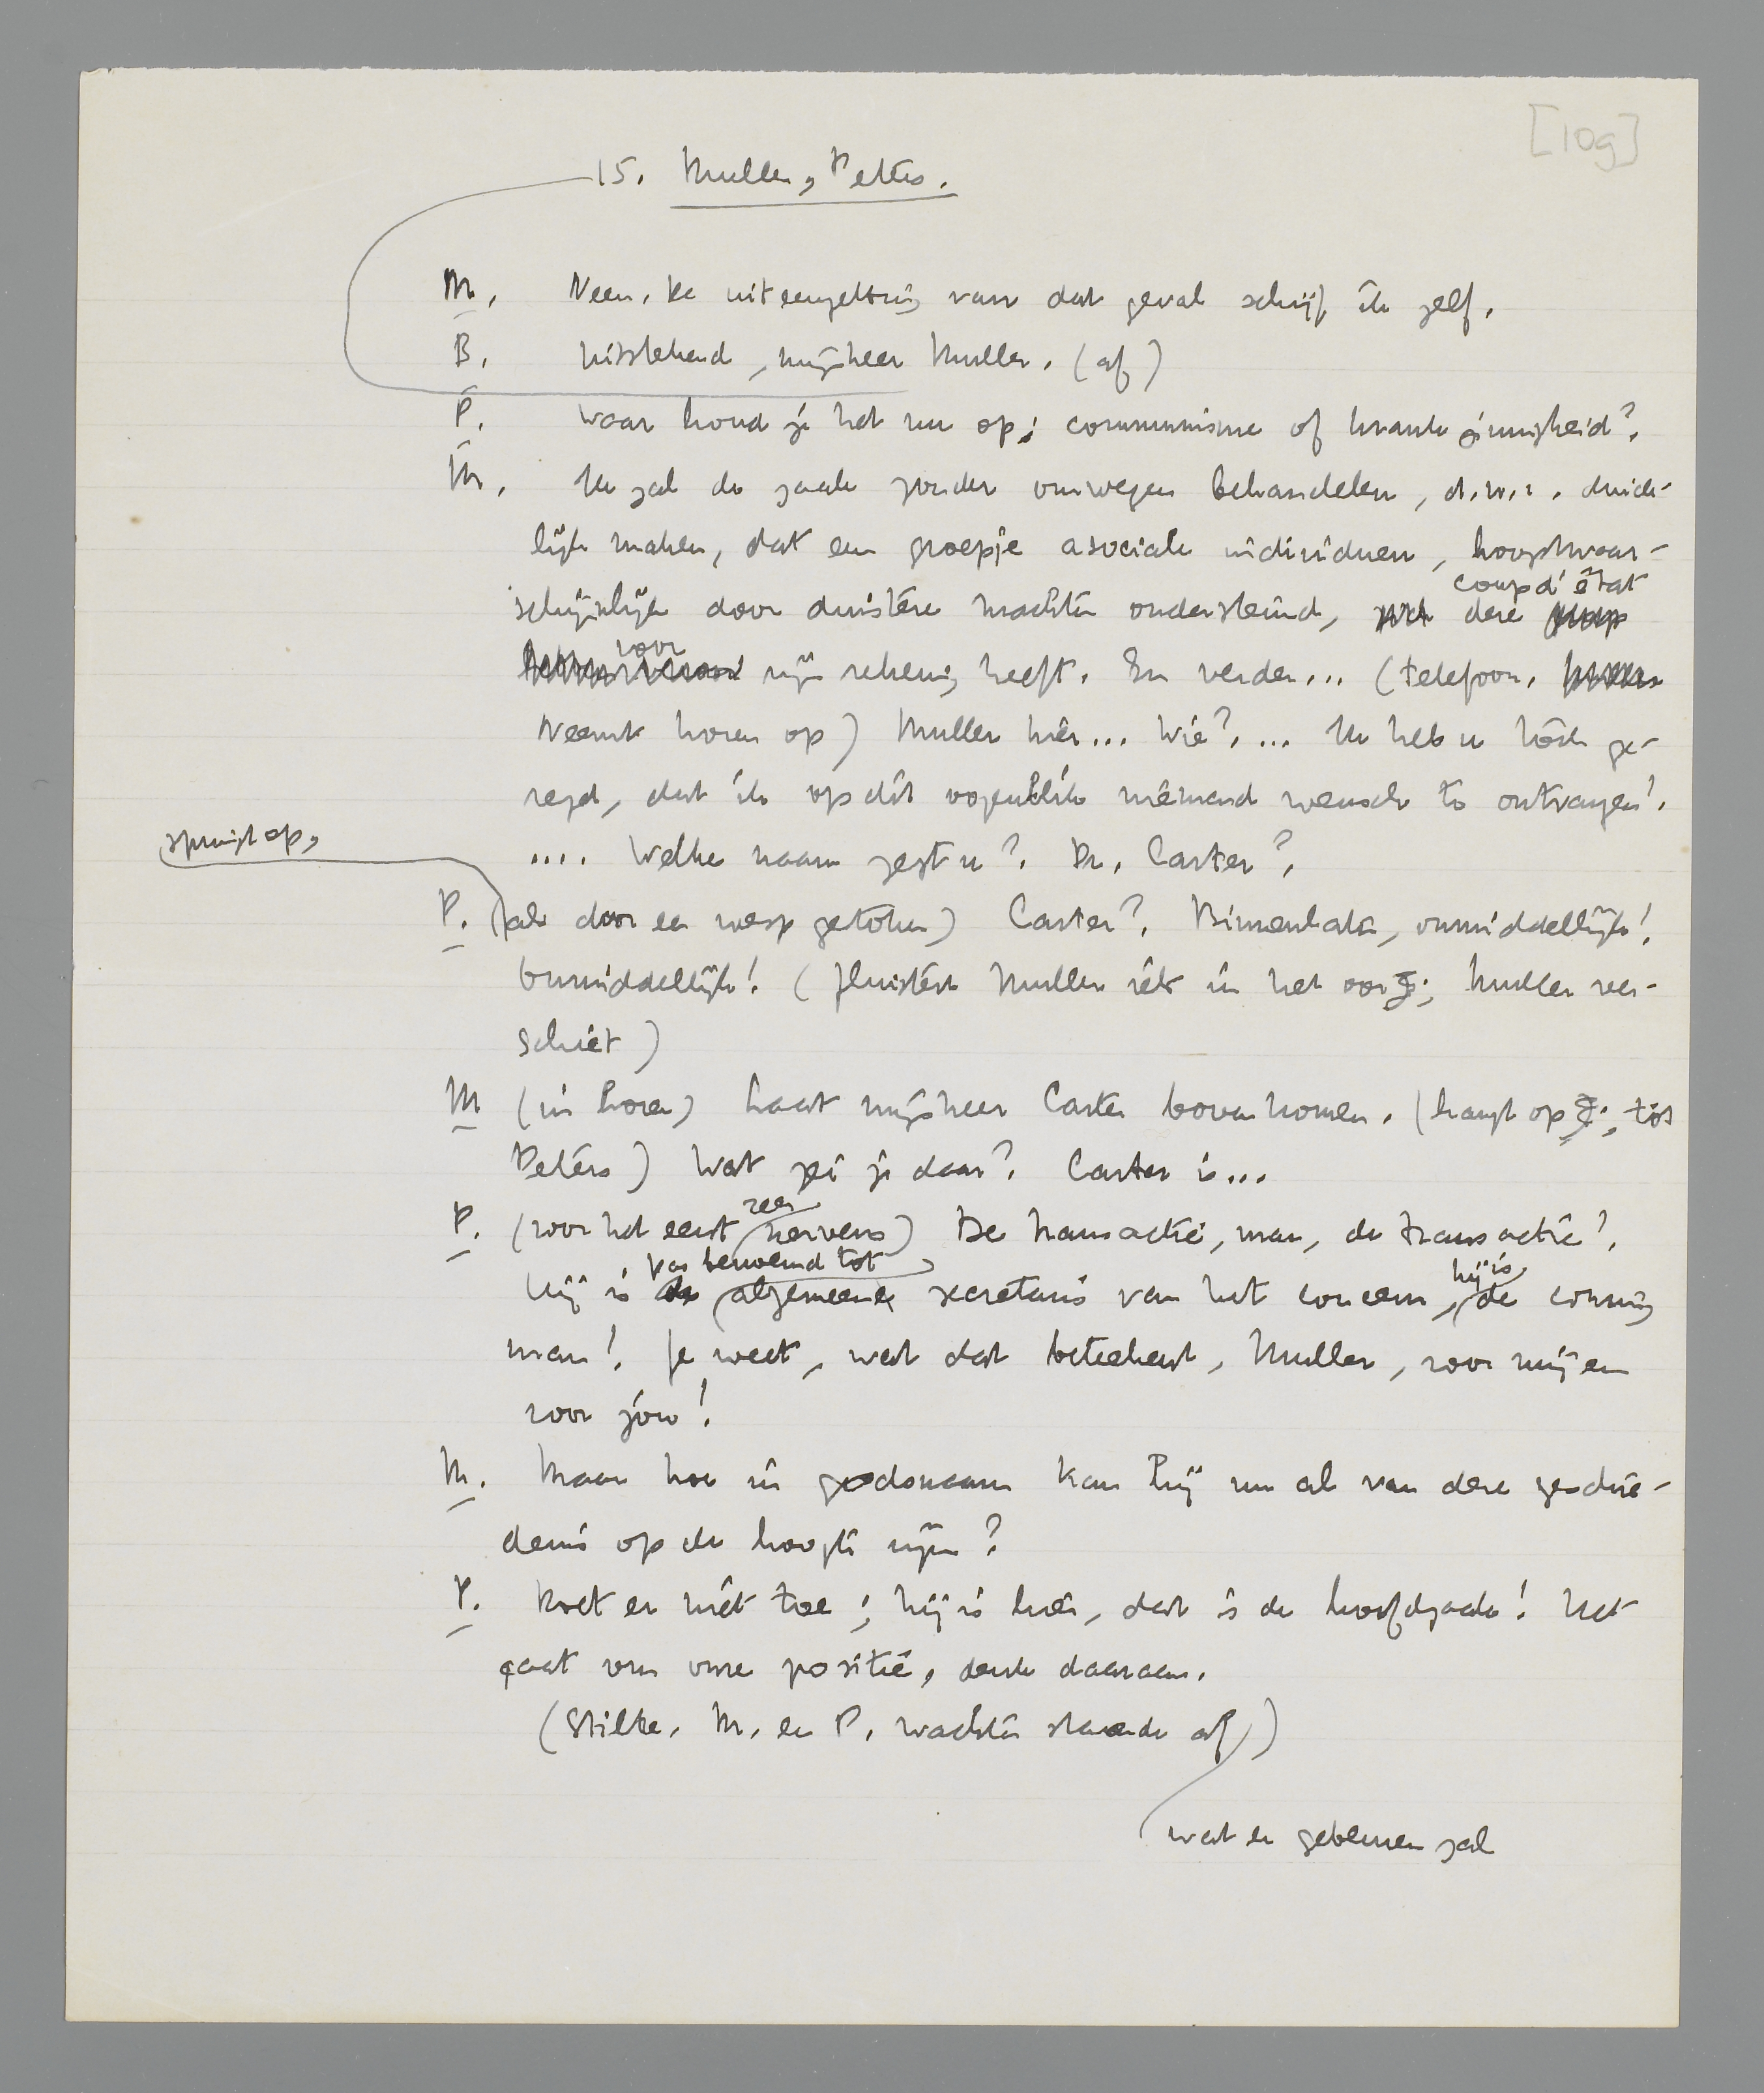 [109]
15. Muller, Peters.
M. Neen, de uiteenzetting van dat geval schrijf ik zelf.
B. Uitstekend, mijnheer Muller. (af)
P. Waar houd je het nu op: communisme of krankzinnigheid?
M. Ik zal de zaak zonder omwegen behandelen, d.w.z. duide-
lijk maken, dat een groepje asociale individuen, hoogstwaar-
coup d'état
schijnlijk door duistere machten ondersteund, deze
voor
zijn rekening heeft. En verder... (telefoon.
Neemt horen op) Muller hier... Wie?... Ik heb u toch ge-
zegd, dat ik op dit ogenblik niemand wensch te ontvangen!
springt op,
.... Welke naam zegt u? Dr. Carter?
P. (als door een wesp gestoken) Carter? Binnenlaten, onmiddellijk!
Onmiddellijk! (fluistert Muller iets in het oor; Muller ver-
schiet)
M (in horen) Laat mijnheer Carter boven komen. (hangt op; tot
Peters) Wat zei je daar? Carter is...
zeer
P. (voor het eerst nerveus) De transactie, man, de transactie!
pas benoemd tot
hij is
Hij is algemeene secretaris van het concern, de coming
man! Je weet, wat dat beteekent, Muller, voor mij en
voor jou!
M. Maar hoe in godsnaam kan hij nu al van deze geschie-
denis op de hoogte zijn?
P. Doet er niet toe; hij is hier, dat is de hoofdzaak! Het
gaat om onze positie, denk daaraan.
(Stilte. M. en P. wachten staande af)
wat er gebeuren zal